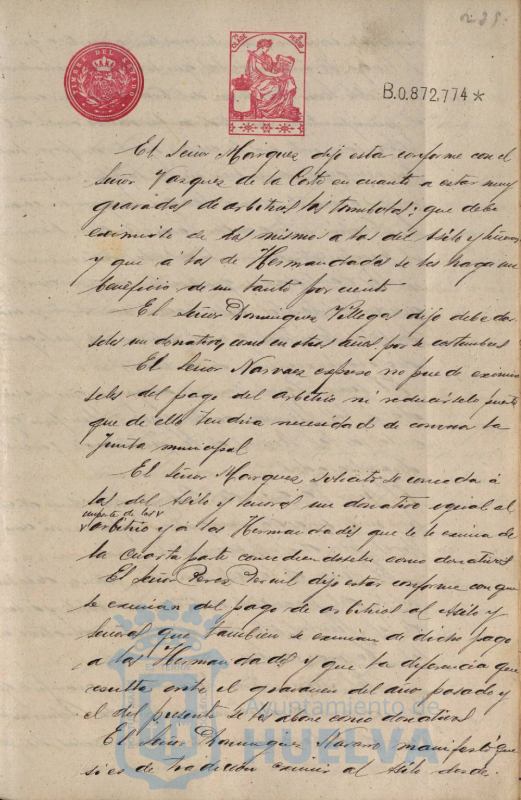 TIMBRE DEL ESTADO
B.0.872,774*
El Señor Marquez dijo estar conforme con el
Señor Vazquez de la Corte en cuanto a estar muy
gravadas de arbitrios las tombolas; que debe
eximirse de las mismas a las del Asilo y
y que á las de Hermandades se les haga un
beneficio de un tanto por ciento
El Señor Dominguez Villegas dijo debe dar
seles un donativo, como en otros años por se costumbre
El Señor Narvaez expuso no puede eximir
seles del pago del arbitrio ni reducirsele puesto
que de ello tendria necesidad de conocer la
Junta municipal
El Señor Marquez solicitó se conceda á
las del Asilo y un donativo igual al
importe de los
arbitrio y á las Hermandades que se le exima de
la cuarta parte concediendoseles como donativo
El Señor Perez dijo estar conforme con que
se eximan del pago de arbitrios al Asilo y
que tambien se eximan de dicho pago
a las Hermandades y que la diferencia que
resulte entre el gravamen del año pasado y
el del presente se les abone como donativo
El Señor Dominguez Navarro manifestó que
si es de tradicion eximir al Asilo desde
Ayuntamiento de
HUELVA